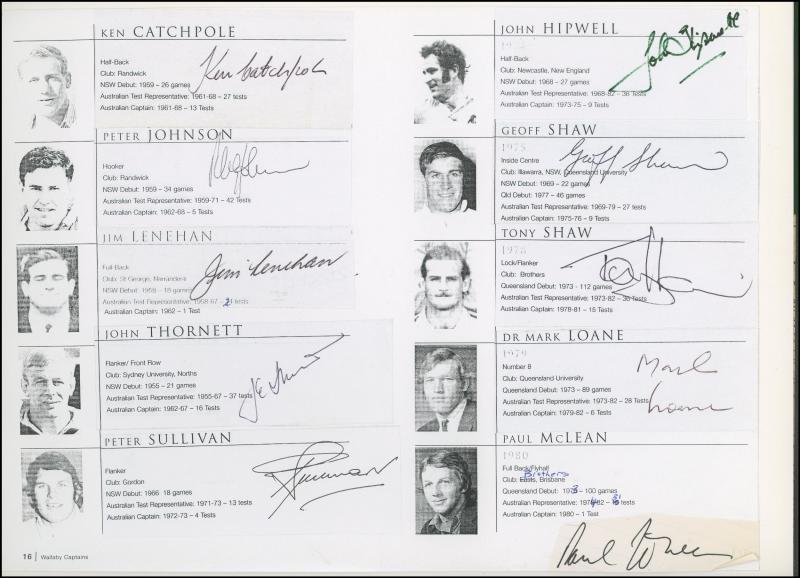 KEN CATCHPOLE
Half-Back
Club: Randwick
NSW Debut: 1959 – 26 games
Australian Test Representative: 1961-68 – 27 tests
Australian Captain: 1961-68 – 13 Tests
Ken Catchpole
PETER JOHNSON
Hooker
Club: Randwick
NSW Debut: 1959 – 34 games
Australian Test Representative: 1959-71 – 42 Tests
Australian Captain: 1962-68 – 5 Tests
JIM LENEHAN
Full Back
Club: St George, Narrandera
NSW Debut: 1958 – 18 games
Australian Test Representative: 1958-67 – 24 tests
Australian Captain: 1962 – 1 Test
Jim Lenehan
JOHN THORNETT
Flanker/ Front Row
Club: Sydney University, Norths
NSW Debut: 1955 – 21 games
Australian Test Representative: 1955-67 – 37 tests
Australian Captain: 1962-67 – 16 Tests
PETER SULLIVAN
Flanker
Club: Gordon
NSW Debut: 1966 18 games
Australian Test Representative: 1971-73 – 13 tests
Australian Captain: 1972-73 – 4 Tests
16 | Wallaby Captains
JOHN HIPWELL
Half-Back
Club: Newcastle, New England
NSW Debut: 1968 – 27 games
Australian Test Representative: 1968-82 – 36 Tests
Australian Captain: 1973-75 – 9 Tests
John Hipwell
GEOFF SHAW
1975
Inside Centre
Club: Illawarra, NSW, Queensland University
NSW Debut: 1969 – 22 games
Qld Debut: 1977 – 46 games
Australian Test Representative: 1969-79 – 27 tests
Australian Captain: 1975-76 – 9 Tests
Geoff Shaw
TONY SHAW
1978
Lock/Flanker
Club: Brothers
Queensland Debut: 1973 - 112 games
Australian Test Representative: 1973-82 – 36 Tests
Australian Captain: 1978-81 – 15 Tests
DR MARK LOANE
1979
Number 8
Club: Queensland University
Queensland Debut: 1973 – 89 games
Australian Test Representative: 1973-82 – 28 Tests
Australian Captain: 1979-82 – 6 Tests
Mark
Loane
PAUL McLEAN
1980
Full Back/Flyhalf
Brothers
Club: Easts, Brisbane
Queensland Debut: 1973 – 100 games
Australian Representative: 1974-82 – tests
Australian Captain: 1980 – 1 Test
Paul McLean